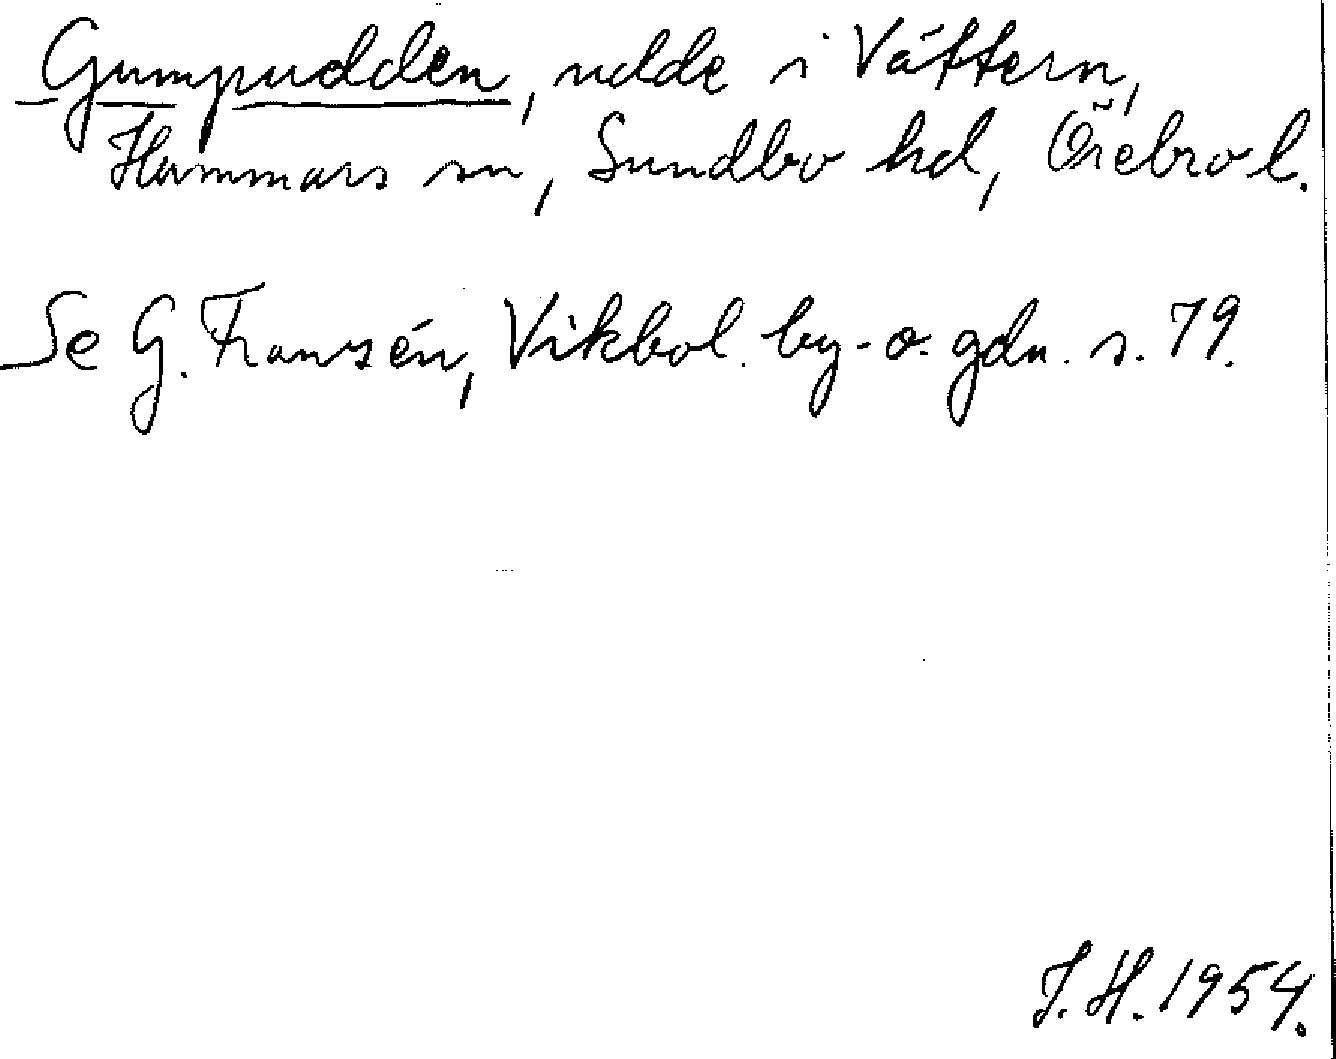 Gumpudden, udde i Vättern,
Hammars sn, Sundbo hd, Örebro l.
Se G. Franzén, Vikbol. by- o. gdn. s. 79.
J. H. 1954.